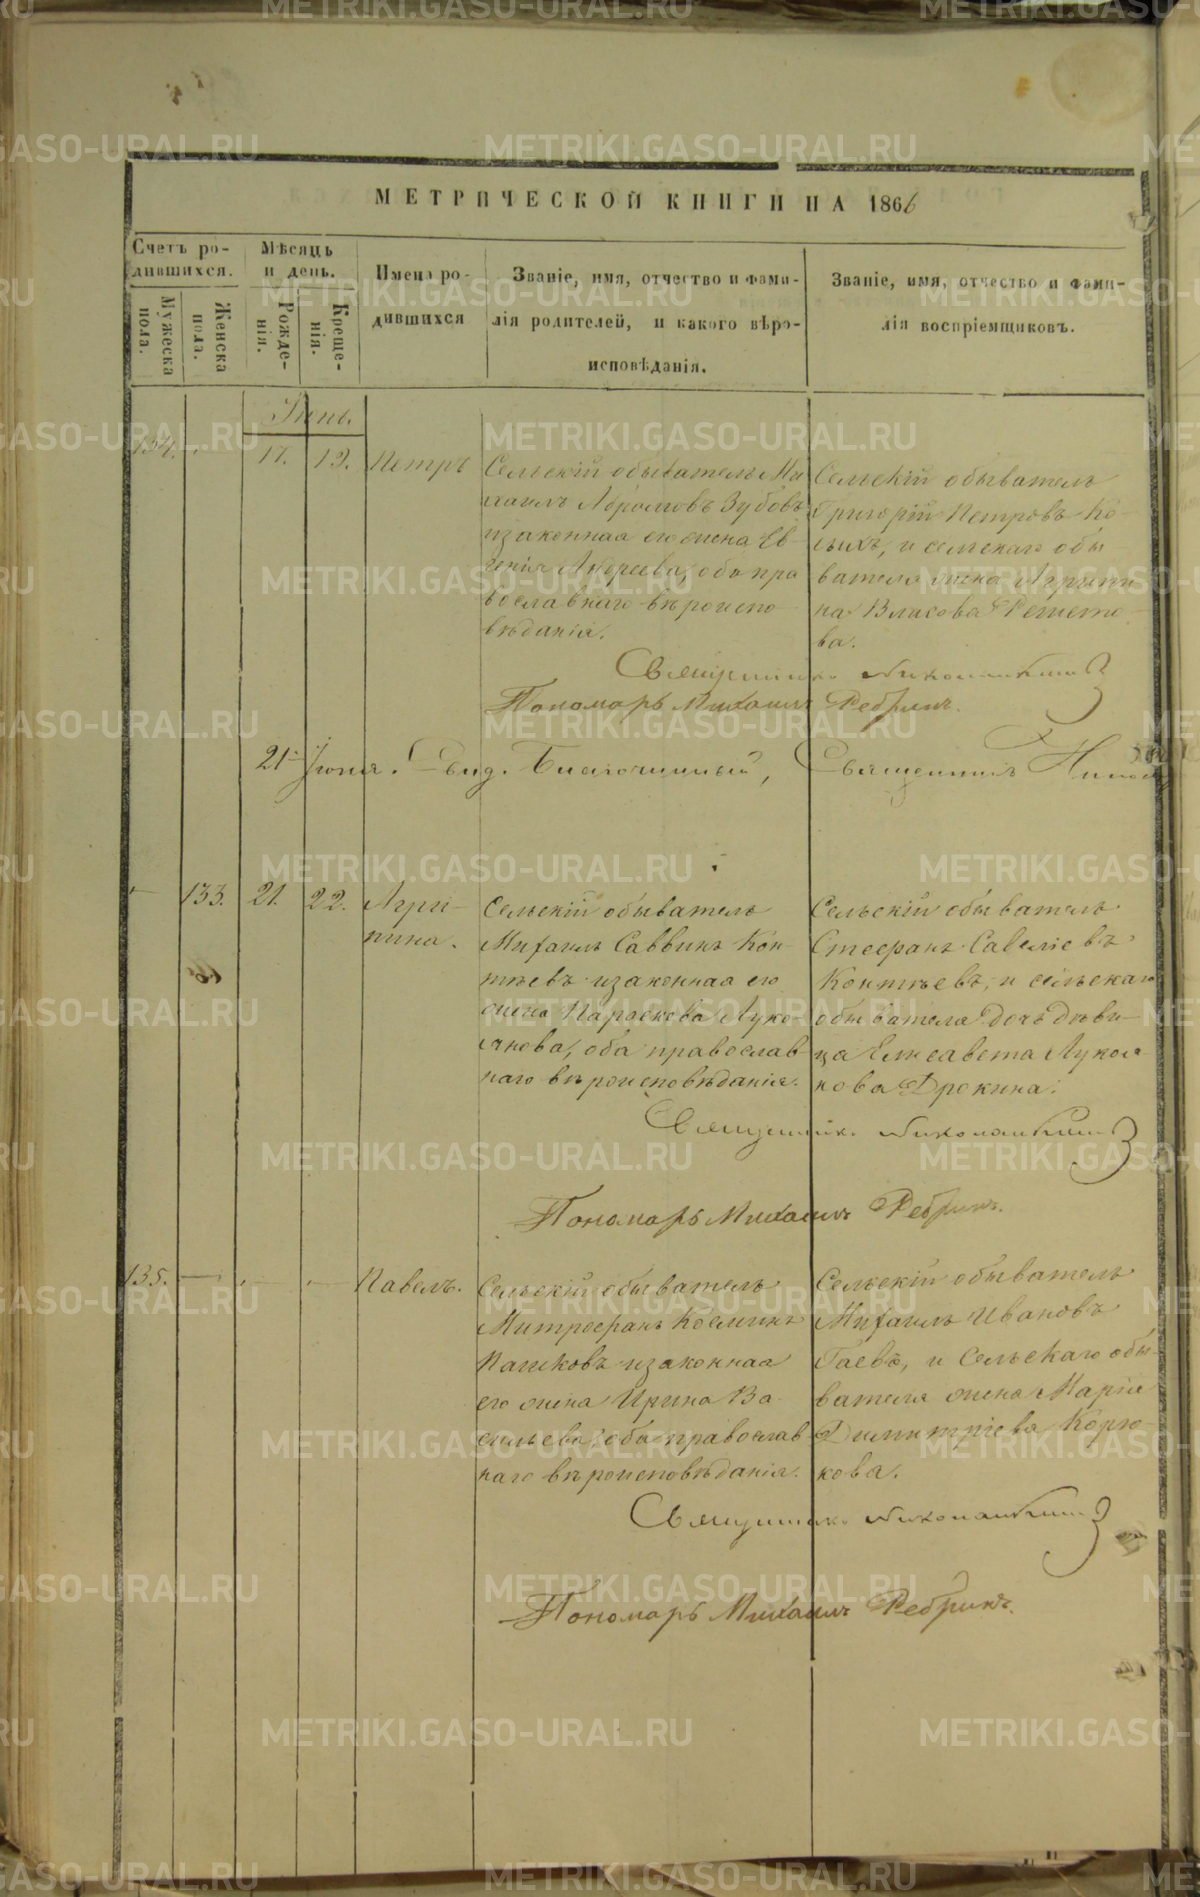 МЕТРИЧЕСКОЙ КНИГИ НА 1866
Счетъ ро-
дившихся.
Мѣсяцъ
и день.
Мужеска
пола.
Женска
пола.
Рожде-
нія.
Креще-
нія.
Имена ро-
дившихся
Званіе, имя, отчество и фами-
лія родителей, и какого вѣро-
исповѣданія.
Званіе, имя, отчество и фами-
лія воспріемщиковъ.
134.
17.
19.
Петръ
Сельскій обыватель Ми
хаилъ Абрамовъ Зубовъ
и законная его жена Ев-
генія Андреева, оба пра
вославнаго вѣроиспо-
вѣданія.
Сельскій обыватель
Григорій Петровъ Ко-
сыхъ, и сельскаго обы
вателя жена Агрипи
на Власова
ва.
Священникъ
Пономарь Михаилъ Ребринъ.
21 Іюня. Свид. Благочинный, Священникъ
133. 21. 22.
Агри-
пина.
Сельскій обыватель
Михаилъ Саввинъ Коп-
тѣевъ и законная его
жена Параскева Луко-
янова, оба православ-
наго вѣроисповѣданія.
Сельскій обыватель
Стефанъ Савеліевъ
Коптѣевъ, и сельскаго
обывателя дочь дѣви-
ца Елисавета Лукоя
нова Дрокина.
Священникъ
Пономарь Михаилъ Ребринъ.
135.
Павелъ.
Сельскій обыватель
Митрофанъ Косминъ
Пашковъ и законная
его жена Ирина Ва
сильева, оба православ
наго вѣроисповѣданія.
Сельскій обыватель
Михаилъ Ивановъ
Гаевъ, и Сельскаго обы-
вателя жена Марія
Димитріева Корю-
кова.
Священникъ
Пономарь Михаилъ Ребринъ.
METRIKI.GASO-URAL.RU